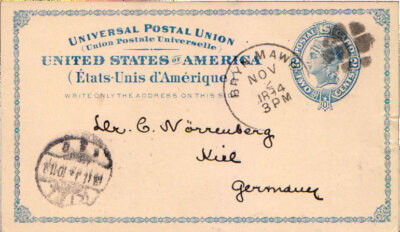 UNIVERSAL POSTAL UNION
(Union Postale Universelle)
UNITED STATES OF AMERICA
(États-Unis d'Amérique)
WRITE ONLY THE ADDRESS ON THIS SIDE
BRYN MAWR
NOV
5
1894
3PM
TWO CENTS
Dr. C. Nörrenberg
Kiel
Germany
KIEL